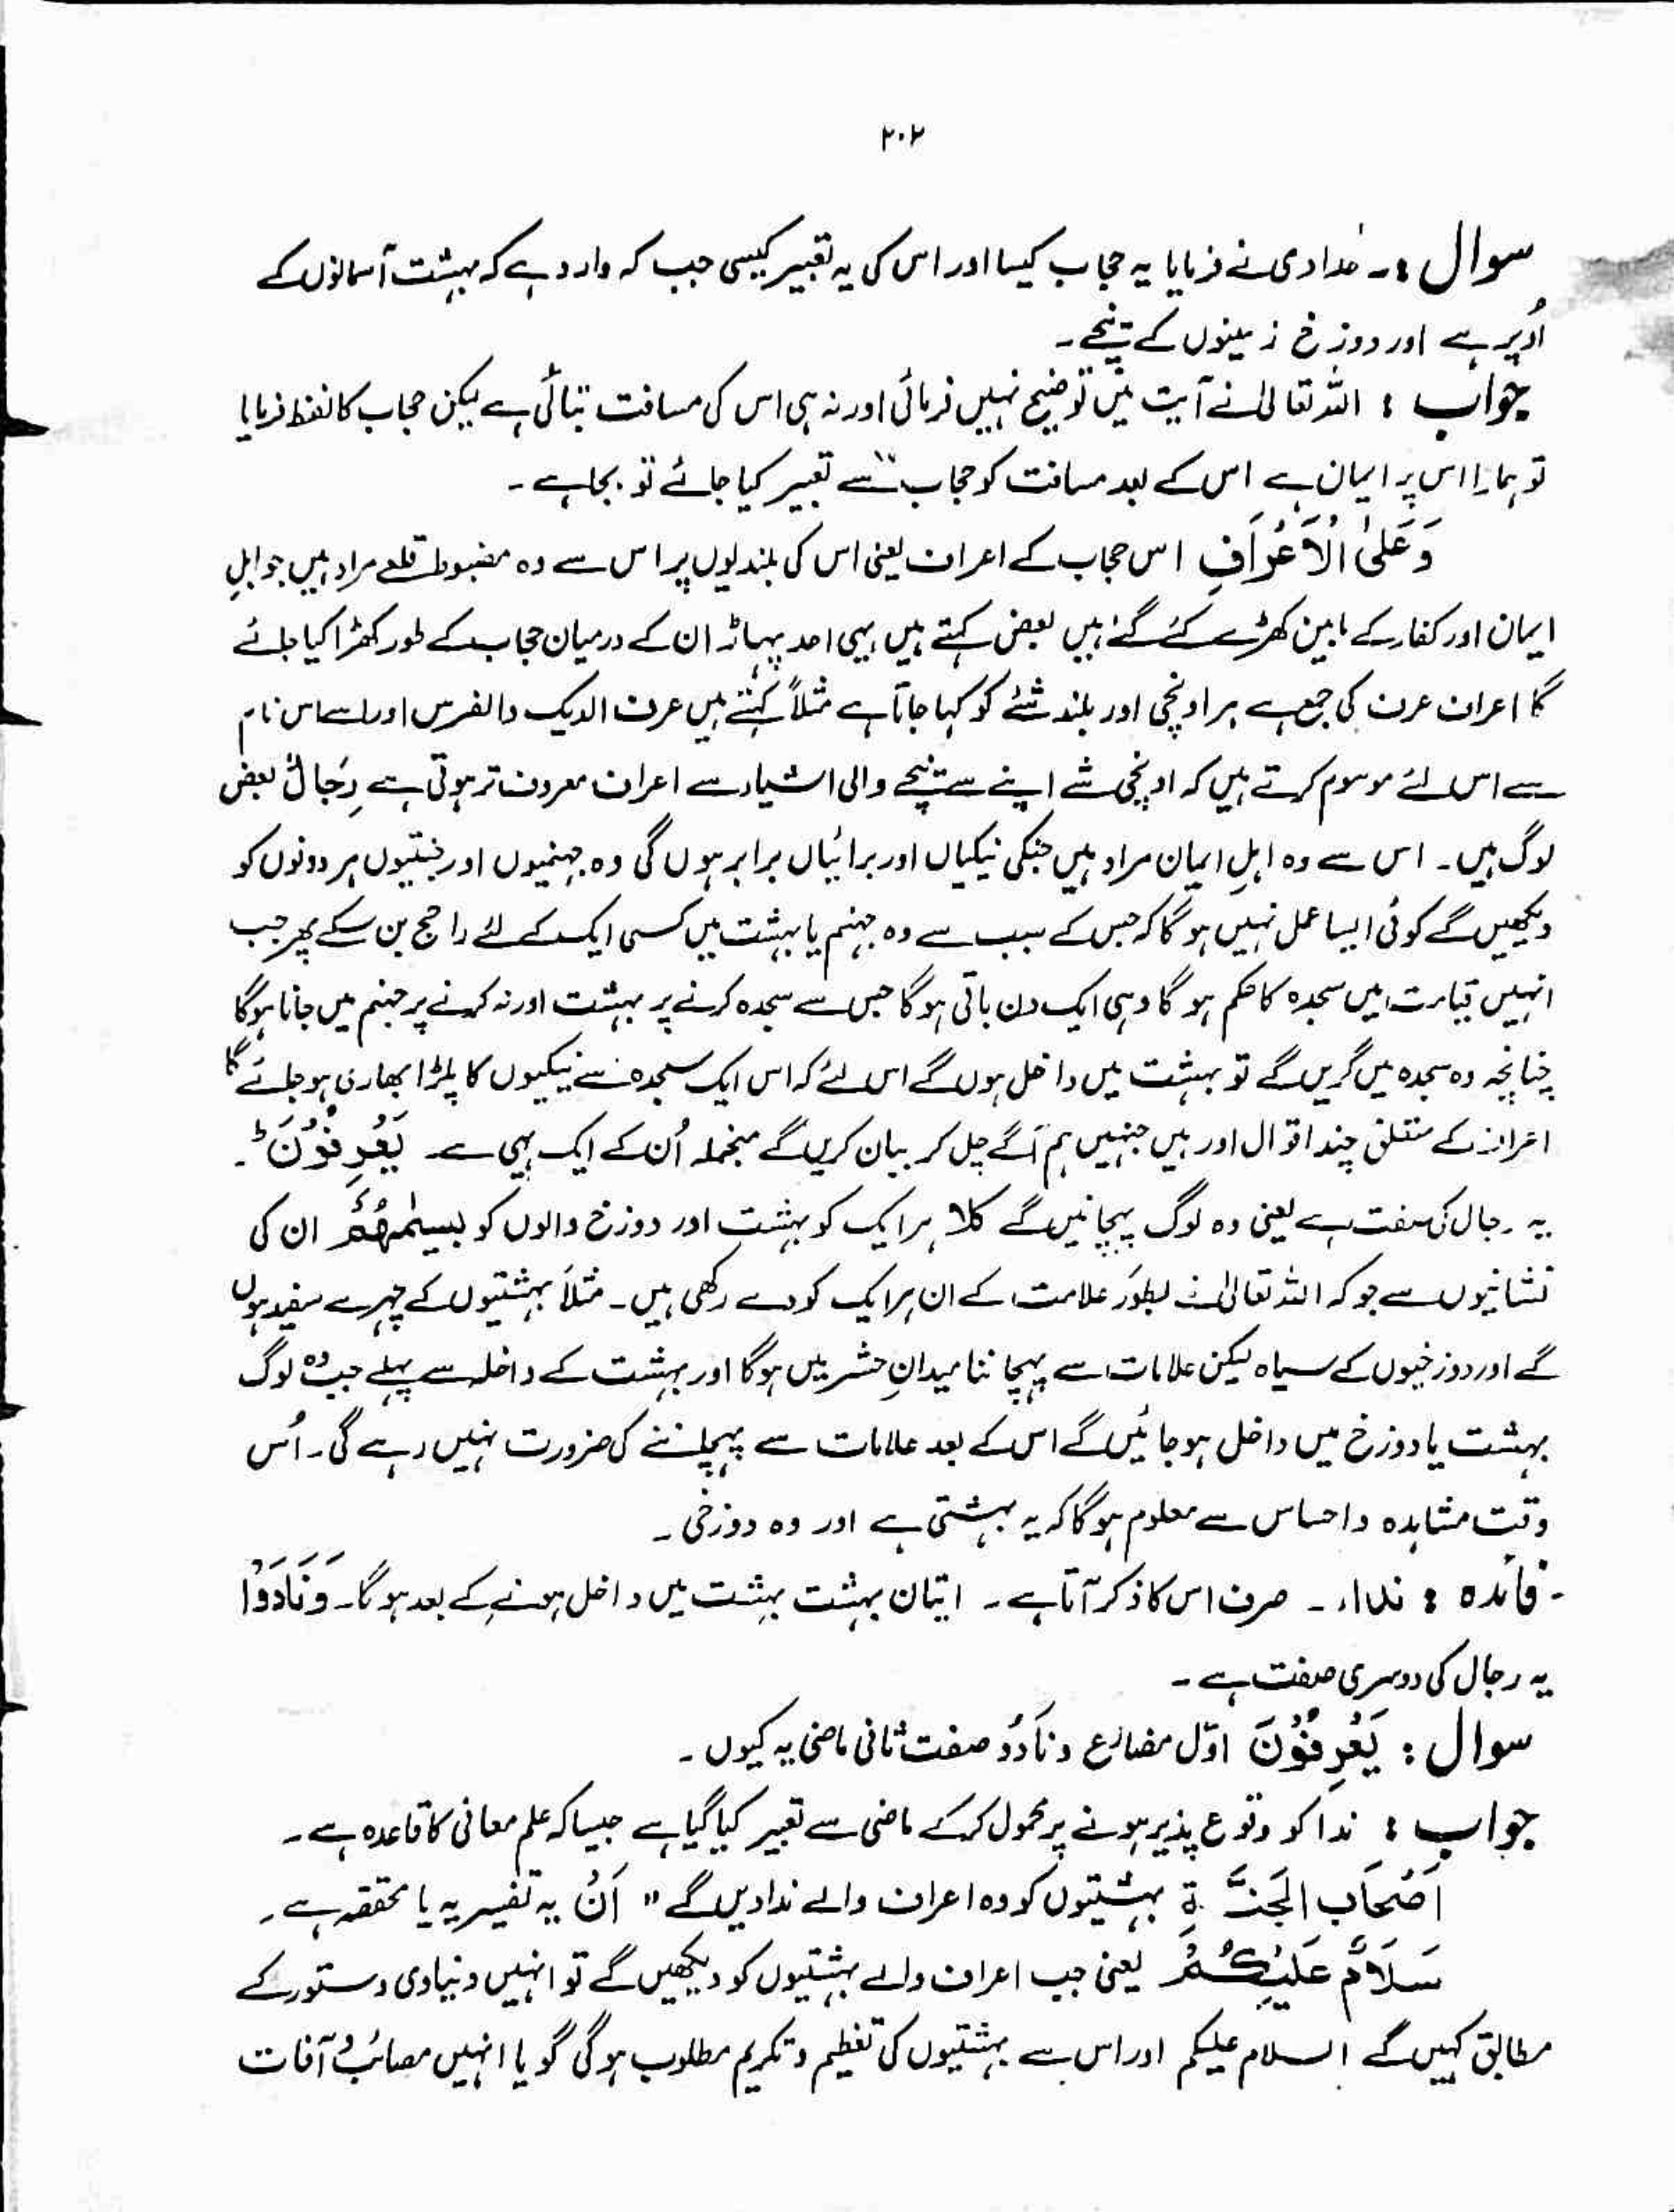 ۲۰۲
سوال :۔ حدادی نے فرمایا یہ حجاب کیسا اور اس کی یہ تعبیر کیسی جب کہ وارد ہے کہ بہشت آسمانوں کے
اُوپر ہے اور دوزخ زمینوں کے نیچے۔
جواب : اللہ تعالیٰ نے آیت میں توضیح نہیں فرمائی اور نہ ہی اس کی مسافت بتائی ہے لیکن حجاب کا لفظ فرمایا
تو ہمارا اس پر ایمان ہے اس کے بعد مسافت کو حجاب سے تعبیر کیا جائے تو بجا ہے۔
وَعَلَى الْاَعْرَافِ اس حجاب کے اعراف یعنی اس کی بلندیوں پر اس سے وہ مضبوط قلعے مراد ہیں جو اہلِ
ایمان اور کفار کے مابین کھڑے کئے گئے ہیں بعض کہتے ہیں یہی احد پہاڑ ان کے درمیان حجاب کے طور کھڑا کیا جائے
گا اعراف عرف کی جمع ہے ہر اونچی اور بلند شئے کو کہا جاتا ہے مثلاً کہتے ہیں عرف الدیک والفرس اور اسے اس نام
سے اس لئے موسوم کرتے ہیں کہ اونچی شے اپنے سے نیچے والی اشیاء سے اعراف معروف تر ہوتی ہے رِجَالٌ بعض
لوگ ہیں۔ اس سے وہ اہلِ ایمان مراد ہیں جنکی نیکیاں اور برائیاں برابر ہوں گی وہ جہنمیوں اور جنتیوں ہر دونوں کو
دیکھیں گے کوئی ایسا عمل نہیں ہو گا کہ جس کے سبب سے وہ جہنم یا بہشت میں کسی ایک کے لئے راجح بن سکے پھر جب
انہیں قیامت میں سجدہ کا حکم ہو گا وہی ایک دن باقی ہو گا جس سے سجدہ کرنے پر بہشت اور نہ کرنے پر جہنم میں جانا ہوگا
چنانچہ وہ سجدہ میں گریں گے تو بہشت میں داخل ہوں گے اس لئے کہ اس ایک سجدہ سے نیکیوں کا پلڑا بھاری ہو جائے گا
اعراف کے متعلق چند اقوال اور ہیں جنہیں ہم آگے چل کر بیان کریں گے منجملہ اُن کے ایک یہی ہے یَعْرِفُوْنَ ط۔
یہ رجال کی صفت ہے یعنی وہ لوگ پہچانیں گے کلا ہر ایک کو بہشت اور دوزخ والوں کو بِسِیْمٰھُمْ ان کی
نشانیوں سے جو کہ اللہ تعالیٰ نے بطور علامت کے ان ہر ایک کو دے رکھی ہیں۔ مثلاً بہشتیوں کے چہرے سفید ہوں
گے اور دوزخیوں کے سیاہ لیکن علامات سے پہچاننا میدانِ حشر میں ہوگا اور بہشت کے داخلہ سے پہلے جب وہ لوگ
بہشت یا دوزخ میں داخل ہو جائیں گے اس کے بعد علامات سے پہچاننے کی ضرورت نہیں رہے گی۔ اُس
وقت مشاہدہ و احساس سے معلوم ہوگا کہ یہ بہشتی ہے اور وہ دوزخی۔
فائدہ : نداء۔ صرف اس کا ذکر آتا ہے۔ اتیان بہشت بہشت میں داخل ہونے کے بعد ہو گا۔ وَنَادَوْا
یہ رجال کی دوسری صفت ہے۔
سوال : یَعْرِفُوْنَ اوّل مضارع و نَادَوْ صفت ثانی ماضی یہ کیوں۔
جواب : ندا کو وقوع پذیر ہونے پر محمول کر کے ماضی سے تعبیر کیا گیا ہے جیسا کہ علم معانی کا قاعدہ ہے۔
اَصْحَابَ الْجَنَّۃِ بہشتیوں کو وہ اعراف والے ندا دیں گے " اَنْ یہ تفسیریہ یا محققہ ہے۔
سَلَامٌ عَلَیْکُمْ یعنی جب اعراف والے بہشتیوں کو دیکھیں گے تو انہیں دنیاوی دستور کے
مطابق کہیں گے السلام علیکم اور اس سے بہشتیوں کی تعظیم و تکریم مطلوب ہو گی گویا انہیں مصائب و آفات